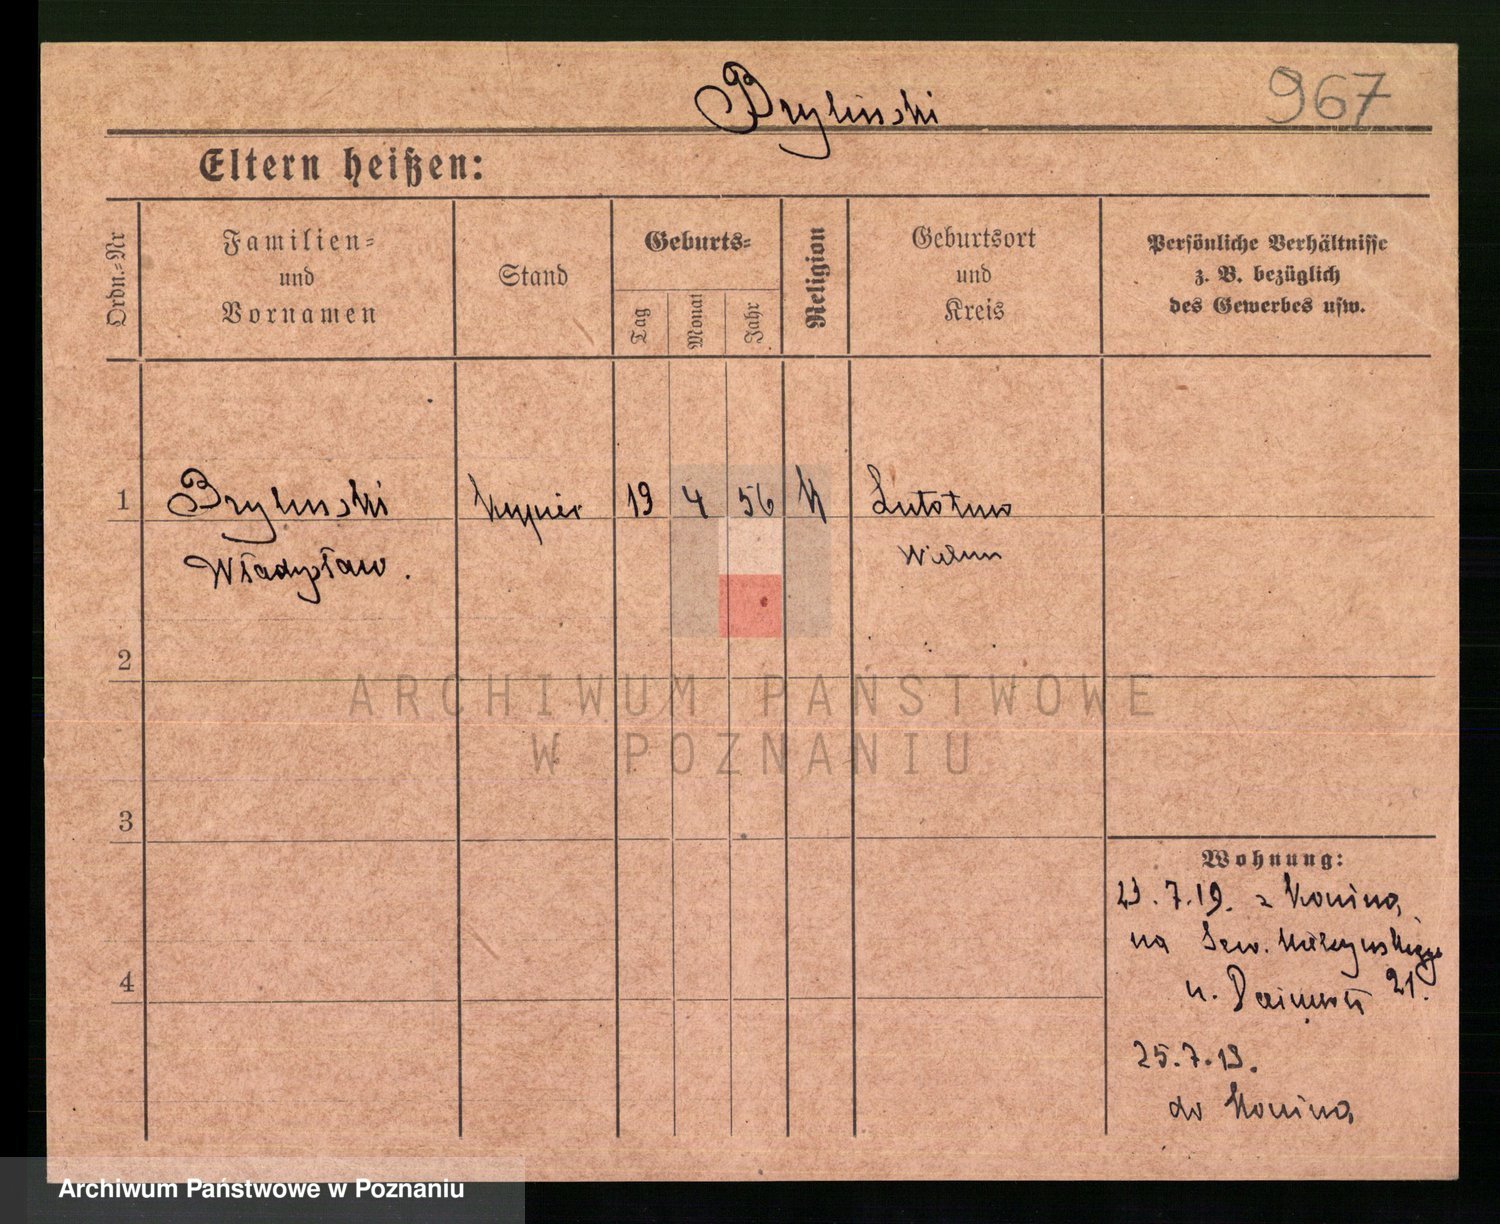 Brylinski
967
Eltern heißen:
Ordn.-Nr
Familien-
und
Vornamen
Stand
Geburts-
Tag
Monat
Jahr
Religion
Geburtsort
und
Kreis
Persönliche Verhältnisse
z. B. bezüglich
des Gewerbes usw.
1
Brylinski
Władysław.
kupiec
19
4
56
K
Lututow
Wielun
2
ARCHIWUM PAŃSTWOWE
W POZNANIU
3
Wohnung:
23.7.19. z Konina
na Sew. Mielżyńskiego
u. 21.
4
25.7.19.
do Konina
Archiwum Państwowe w Poznaniu